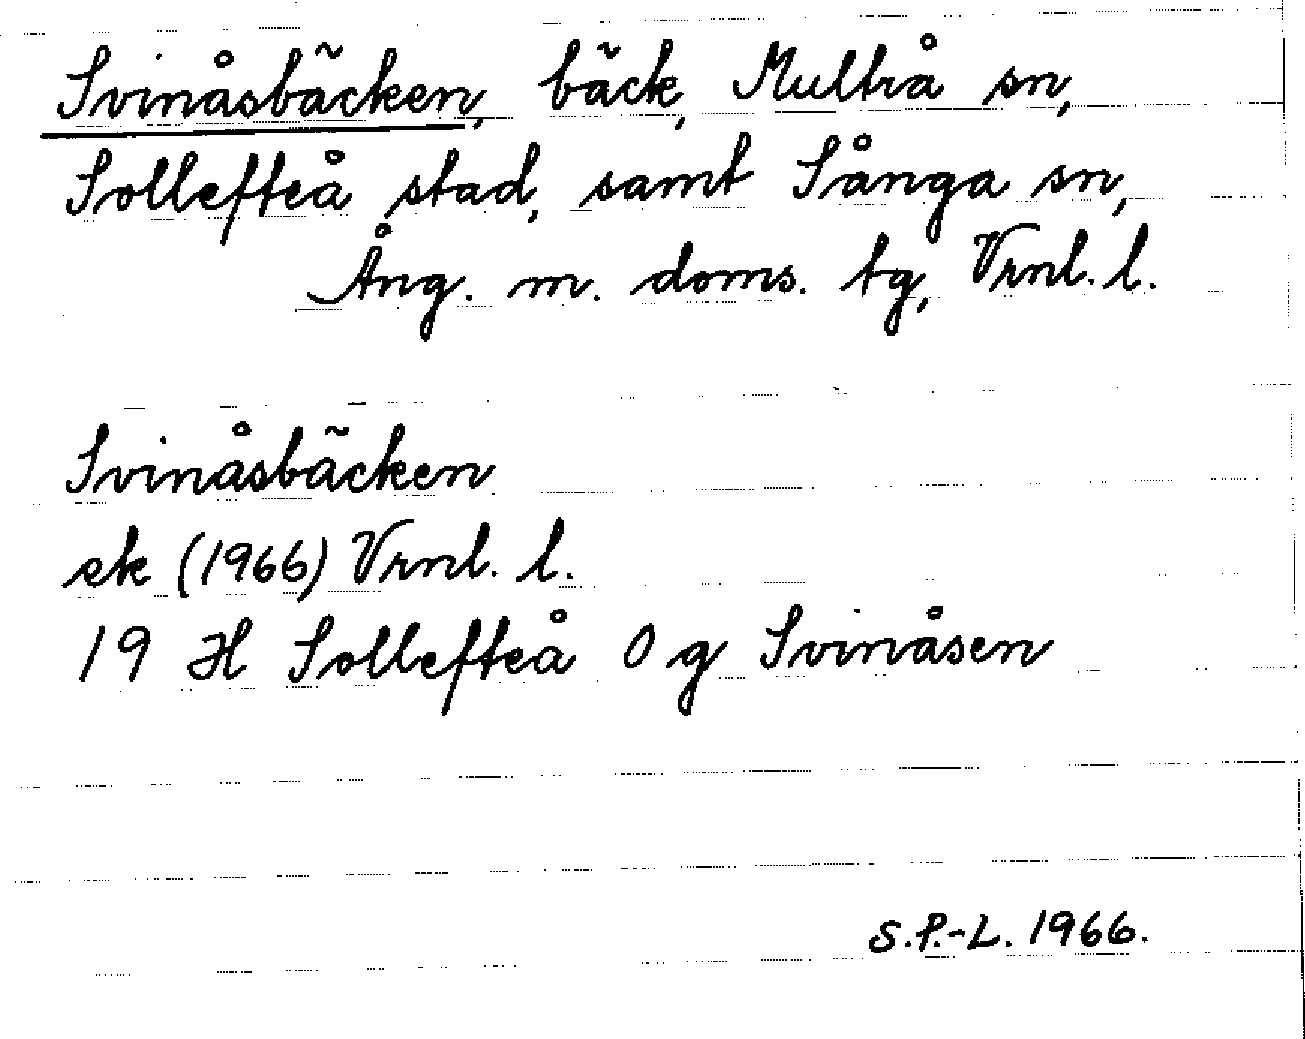 Svinåsbäcken, bäck, Multrå sn,
Sollefteå stad, samt Sånga sn,
Ång. m. doms. tg, Vrnl. l.
Svinåsbäcken
ek (1966) Vrnl. l.
19 H Sollefteå 0 g Svinåsen
S.P.-L. 1966.